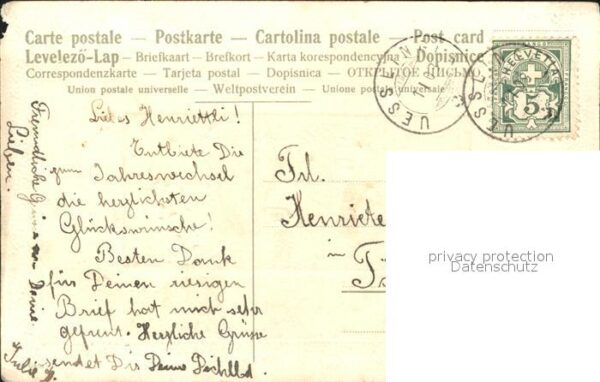 Carte postale – Postkarte – Cartolina postale – Post card
Levelező-Lap – Briefkaart – Brefkort – Karta korespondencyjna – Dopisnice
Correspondenzkarte – Tarjeta postal – Dopisnica – ОТКРЫТОЕ ПИСЬМО
Union postale universelle – Weltpostverein – Unione postale universale
HELVETIA
5
UESSE
UESSE
Liebes Henriettli!
Entbiete Die
zum Jahreswechsel
die herzlichsten
Glückswünsche!
Besten Dank
für Deinen riesigen
Brief hat mich sehr
gefreut. Herzliche Grüsse
sendet Dir Deine
Julie
Freundliche Grüsse an Deine
Lieben.
Frl.
Henriette
in
privacy protection
Datenschutz